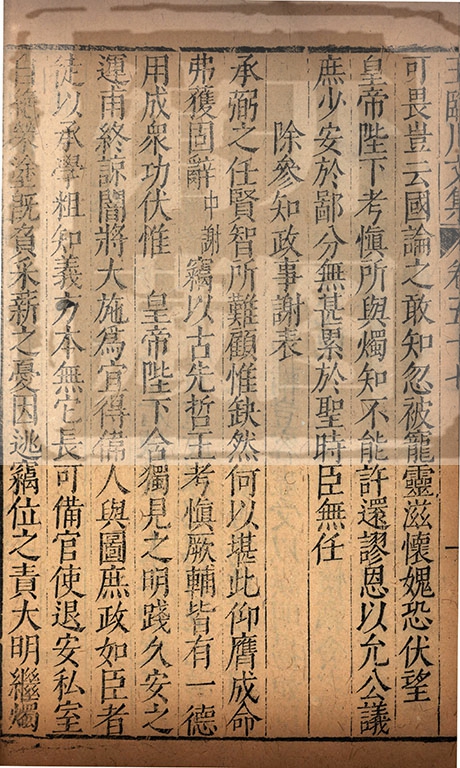 王臨川文集 卷五十七 一
可畏豈云國論之敢知忽被寵靈滋懷媿恐伏望
皇帝陛下考慎所與燭知不能許還謬恩以允公議
庶少安於鄙分無甚累於聖時臣無任
除參知政事謝表
承弼之任賢智所難顧惟缺然何以堪此仰膺成命
弗獲固辭中謝竊以古先哲王考慎厥輔皆有一德
用成衆功伏惟 皇帝陛下含獨見之明踐久安之
運甫終諒闇將大施爲宜得偉人與圖庶政如臣者
徒以承學粗知義方本無它長可備官使退安私室
自絶榮塗既負采薪之憂因逃竊位之責大明繼燭